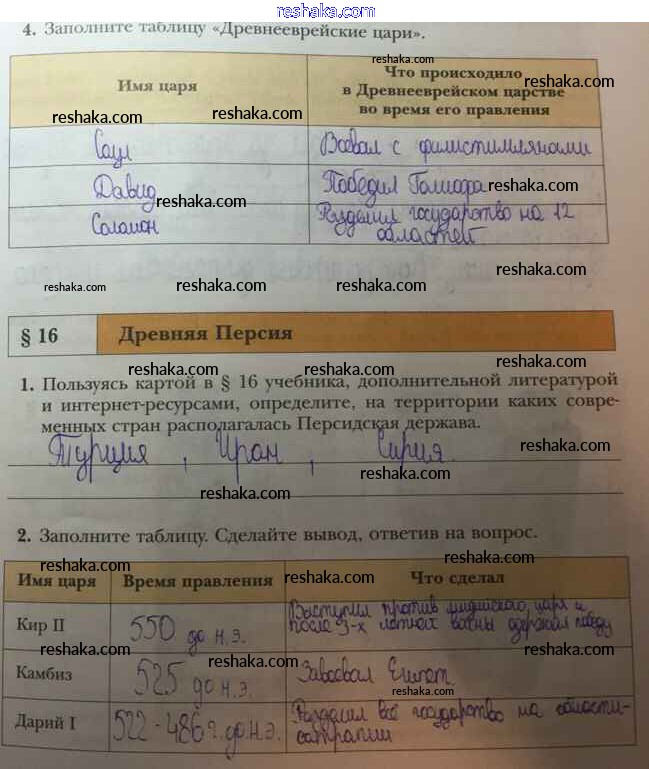 reshaka.com
reshaka.com
4. Заполните таблицу «Древнееврейские цари».
reshaka.com
Имя царя
Что происходило
в Древнееврейском царстве
во время его правления
reshaka.com
reshaka.com
reshaka.com
Саул
Воевал с филистимлянами
Давид
Победил Голиафа
reshaka.com
reshaka.com
Соломон
Разделил государство на 12
областей
reshaka.com
reshaka.com
reshaka.com
reshaka.com
reshaka.com
§ 16
Древняя Персия
reshaka.com
reshaka.com
1. Пользуясь картой в § 16 учебника, дополнительной литературой
и интернет-ресурсами, определите, на территории каких совре-
менных стран располагалась Персидская держава.
reshaka.com
reshaka.com
reshaka.com
Турция, Иран, Сирия.
reshaka.com
reshaka.com
2. Заполните таблицу. Сделайте вывод, ответив на вопрос.
reshaka.com
reshaka.com
reshaka.com
Имя царя
Время правления
Что сделал
Кир II
550 до н.э.
Выступил против мидийского царя и
после 3-х летней войны одержал победу
reshaka.com
reshaka.com
reshaka.com
Камбиз
525 до н.э.
Завоевал Египет
reshaka.com
reshaka.com
Дарий I
522-486 г. до н.э.
Разделил всё государство на области-
сатрапии
reshaka.com
reshaka.com
reshaka.com